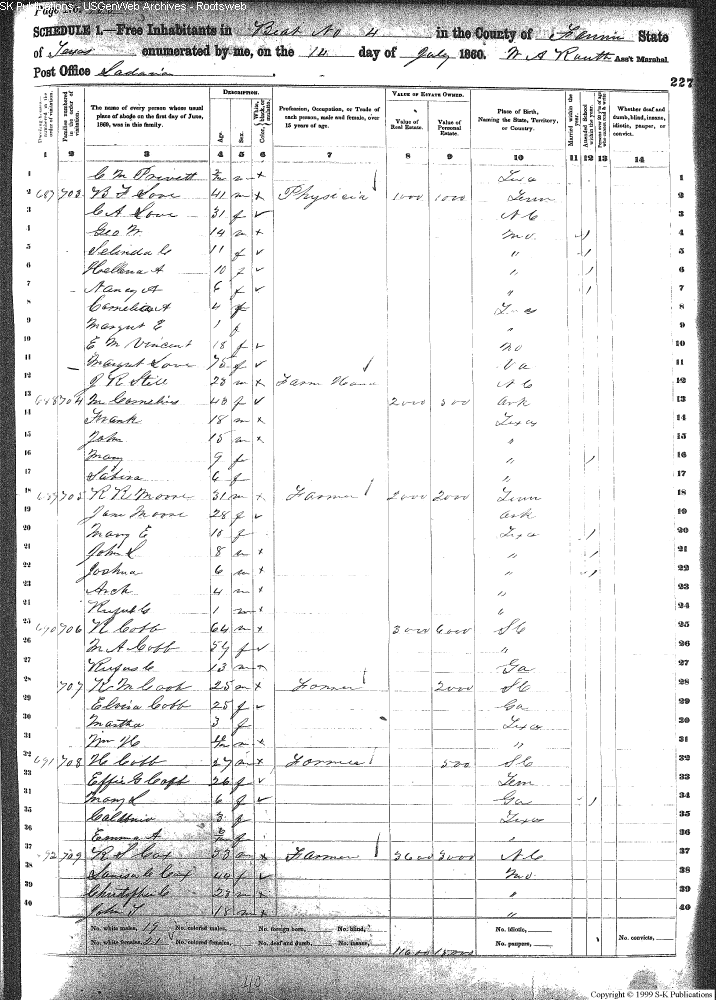 SK Publications - USGenWeb Archives - Rootsweb
Page
SCHEDULE 1.—Free Inhabitants in Beat No 4 in the County of Fannin State
of Texas enumerated by me, on the 14 day of July 1860. W A Rauth Ass't Marshal.
Post Office Ladonia
227
Dwelling-houses—numbered in the order of visitation.
Families numbered in the order of visitation.
The name of every person whose usual place of abode on the first day of June, 1860, was in this family.
DESCRIPTION.
Age.
Sex.
Color, White, black, or mulatto.
Profession, Occupation, or Trade of each person, male and female, over 15 years of age.
VALUE OF ESTATE OWNED.
Value of Real Estate.
Value of Personal Estate.
Place of Birth, Naming the State, Territory, or Country.
Married within the year.
Attended School within the year.
Whether deaf and dumb, blind, insane, idiotic, pauper, or convict.
1 2 3 4 5 6 7 8 9 10 11 12 13 14
1 C M Privett m Texa 1
2 687 703 B F Love 41 m Physicia 1000 1000 Tenn 2
3 C A Love 31 f N C 3
4 Geo W 14 m Mo 4
5 Selinda C 11 f " 5
6 Hellena A 10 f " 6
7 Nancy A 6 f " 7
8 Cornelia A 4 f 8
9 Margret E 1 f " 9
10 E M Vincent 18 f Mo 10
11 Margret Love 75 f Va 11
12 J R Still 23 m Farm Hand N C 12
13 688 704 M Cornelius 43 f 2000 500 Ark 13
14 Frank 18 m Texas 14
15 John 15 m " 15
16 Mary 9 f " 16
17 Sabina 6 f " 17
18 689 705 R R Moore 31 m Farmer 2000 2000 Tenn 18
19 Jane Moore 28 f Ark 19
20 Mary E 10 f Texa 20
21 John L 8 m " 21
22 Joshua 6 m " 22
23 Arch 4 m " 23
24 Rufus C 1 m " 24
25 690 706 R Cobb 64 m 3000 6000 S C 25
26 M A Cobb 54 f " 26
27 Rufus C 13 m Ga 27
28 707 R M Cobb 25 m Farmer 2000 S C 28
29 Elvira Cobb 25 f Ga 29
30 Martha 3 f Texa 30
31 Wm H m " 31
32 691 708 H Cobb 27 m Farmer 500 S C 32
33 Effie G Cobb 26 f Tenn 33
34 Mary L 6 f Ga 34
35 3 f Texas 35
36 Emma A f " 36
37 692 709 R S Cox 53 m Farmer 3600 3000 N C 37
38 Louisa C Cox 44 f Mo 38
39 Christopher C 23 m " 39
40 John T 18 m " 40
No. white males, 19 No. colored males, No. foreign born, No. blind, No. idiotic,
No. white females, 21 No. colored females, No. deaf and dumb, No. insane, No. paupers, No. convicts,
11600 15000
40
Copyright © 1999 S-K Publications